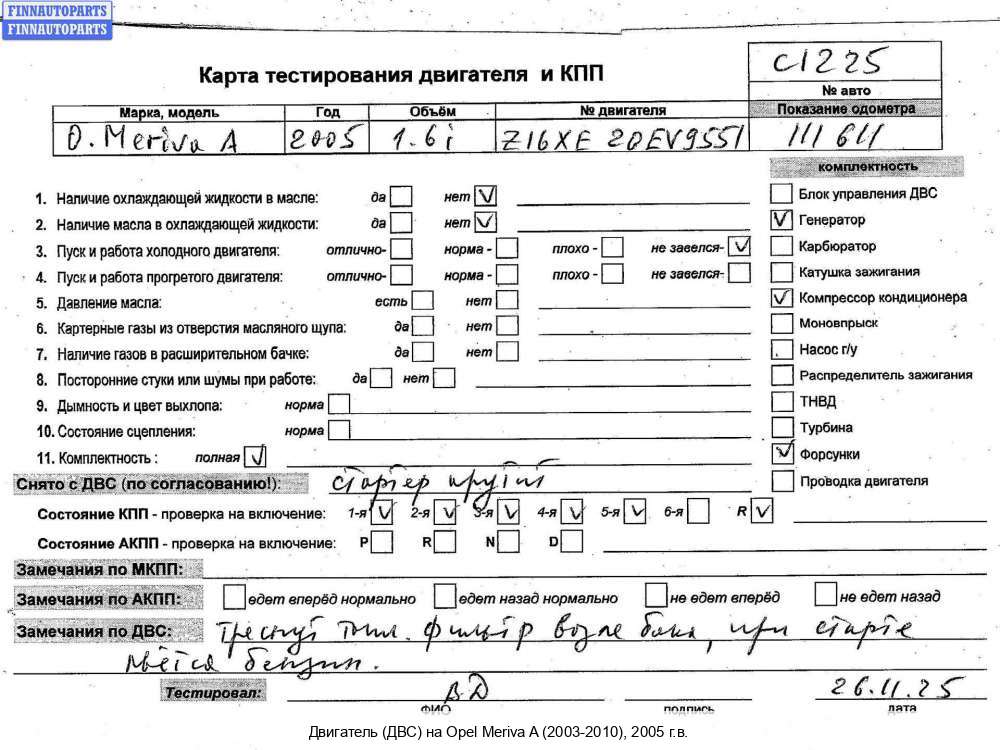 FINNAUTOPARTS
FINNAUTOPARTS
Карта тестирования двигателя и КПП
C1225
№ авто
Марка, модель Год Объём № двигателя Показание одометра
O. Meriva A 2005 1.6i Z16XE 20EV9551 111 611
комплектность
1. Наличие охлаждающей жидкости в масле: да нет
Блок управления ДВС
2. Наличие масла в охлаждающей жидкости: да нет
Генератор
3. Пуск и работа холодного двигателя: отлично- норма - плохо - не завелся-
Карбюратор
4. Пуск и работа прогретого двигателя: отлично- норма - плохо - не завелся-
Катушка зажигания
5. Давление масла: есть нет
Компрессор кондиционера
6. Картерные газы из отверстия масляного щупа: да нет
Моновпрыск
7. Наличие газов в расширительном бачке: да нет
Насос г/у
8. Посторонние стуки или шумы при работе: да нет
Распределитель зажигания
9. Дымность и цвет выхлопа: норма
ТНВД
10. Состояние сцепления: норма
Турбина
11. Комплектность : полная
Форсунки
Снято с ДВС (по согласованию!): стартер крутит
Проводка двигателя
Состояние КПП - проверка на включение: 1-я 2-я 3-я 4-я 5-я 6-я R
Состояние АКПП - проверка на включение: P R N D
Замечания по МКПП:
Замечания по АКПП: едет вперёд нормально едет назад нормально не едет вперёд не едет назад
Замечания по ДВС: треснут топл. фильтр возле бака, при старте
льётся бензин.
Тестировал: ВД 26.11.25
ФИО подпись дата
Двигатель (ДВС) на Opel Meriva A (2003-2010), 2005 г.в.